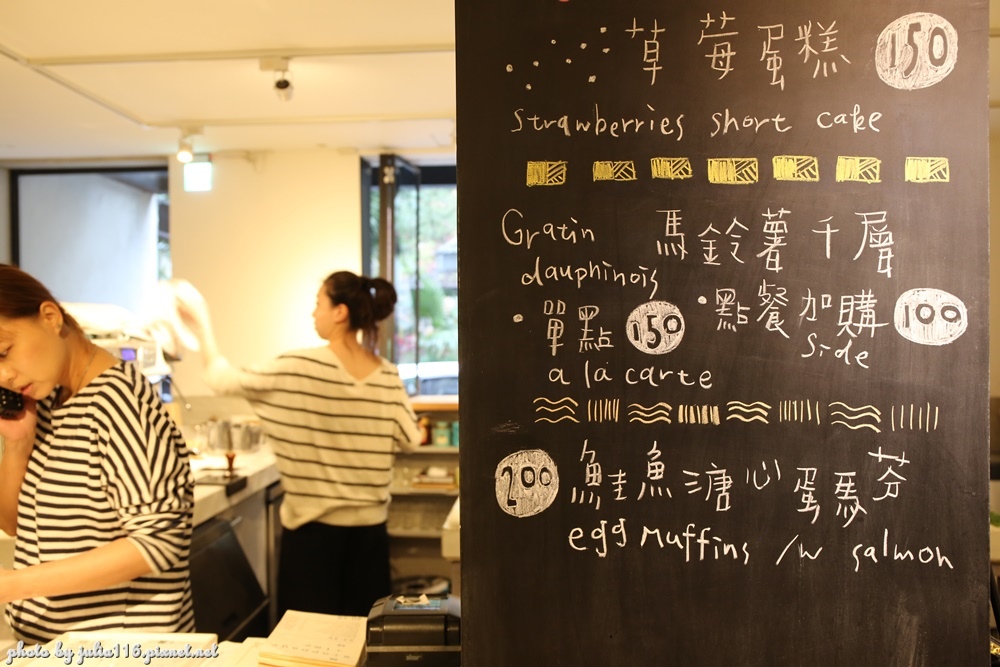 草莓蛋糕 150
Strawberries short cake
Gratin 馬鈴薯千層
dauphinois
• 單點 150 • 點餐加購 100
side
a la carte
200 鮭魚溏心蛋馬芬
egg Muffins /w salmon
photo by julia116.pixnet.net